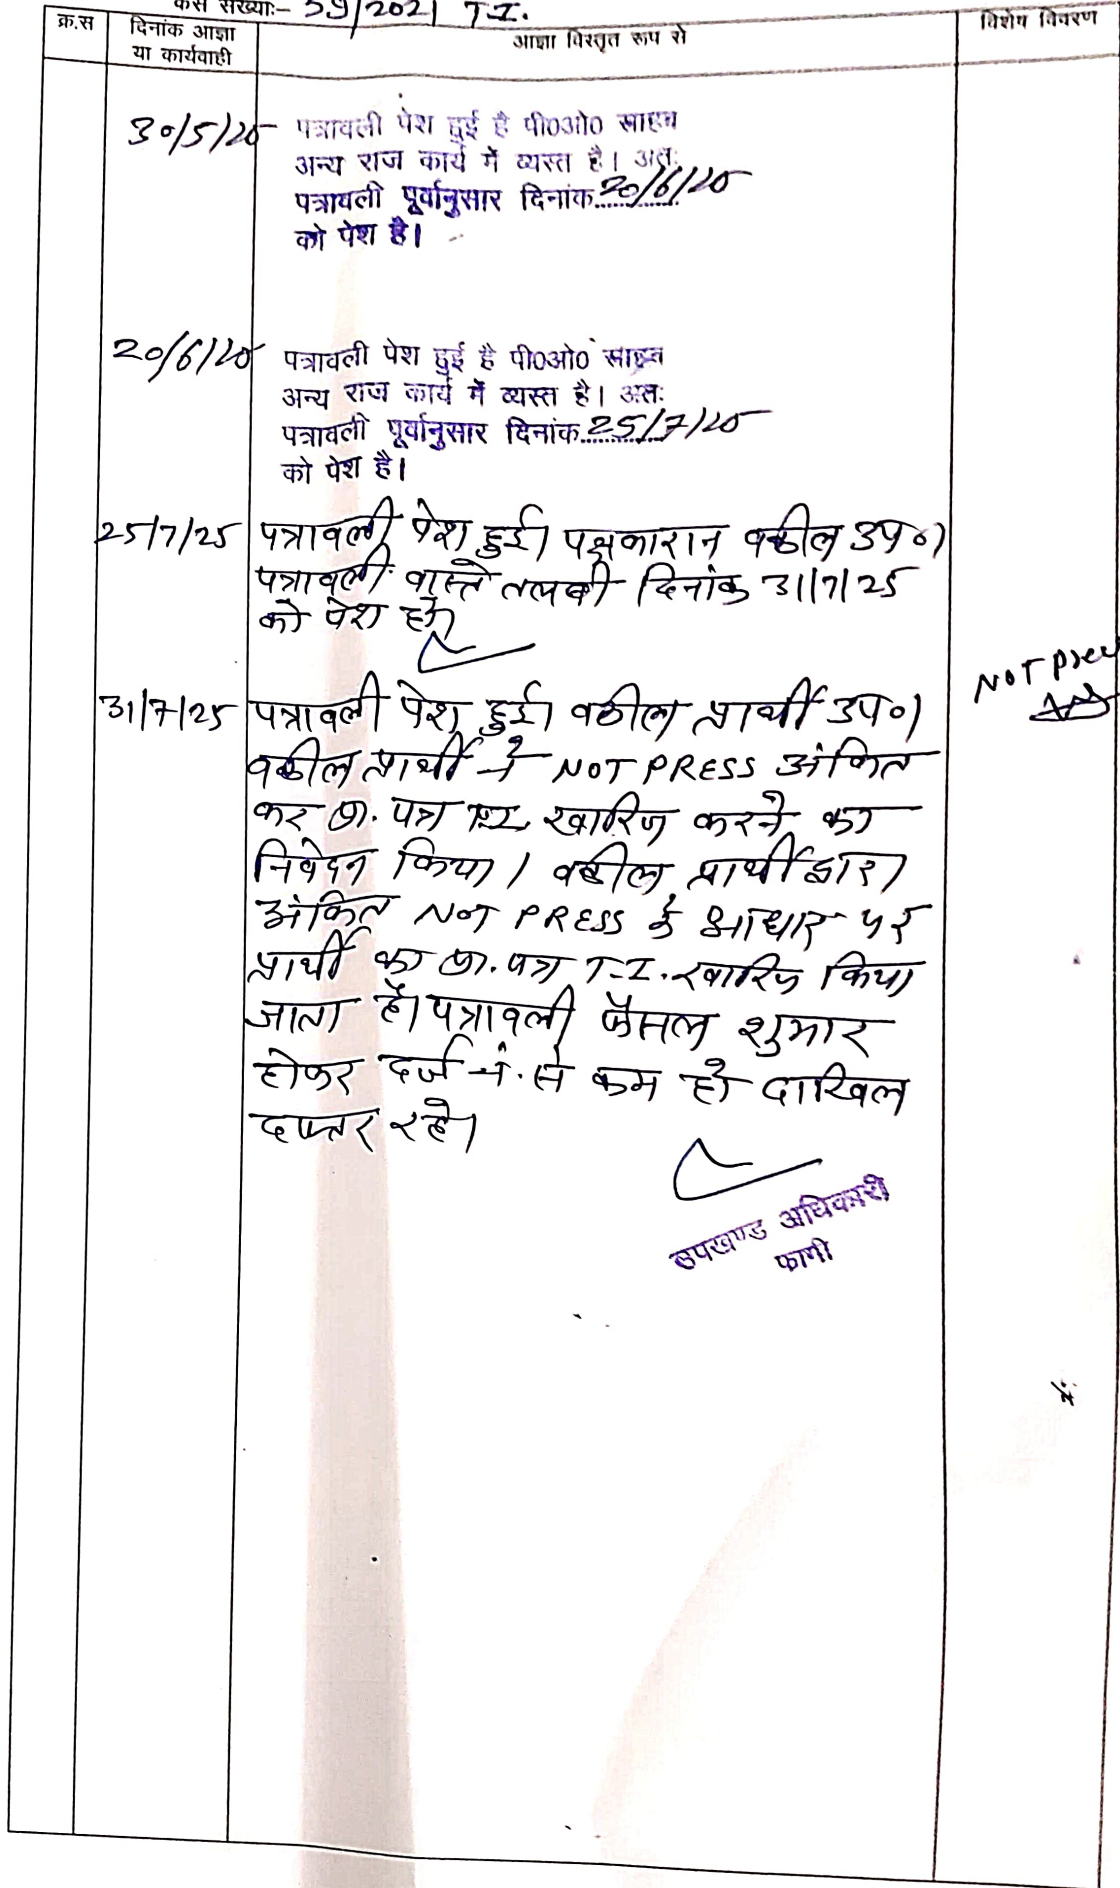 केस संख्याः- 59/2021 T.I.
क्र.स दिनांक आज्ञा या कार्यवाही आज्ञा विस्तृत रूप से विशेष विवरण
30/5/25 पत्रावली पेश हुई है पी0ओ0 साहब
अन्य राज कार्य में व्यस्त है। अतः
पत्रावली पूर्वानुसार दिनांक 20/6/25
को पेश है।
20/6/25 पत्रावली पेश हुई है पी0ओ0 साहब
अन्य राज कार्य में व्यस्त है। अतः
पत्रावली पूर्वानुसार दिनांक 25/7/25
को पेश है।
25/7/25 पत्रावली पेश हुई। पक्षकारान वकील उप०।
पत्रावली वास्ते तलबी दिनांक 31/7/25
को पेश हो।
NOT Press
31/7/25 पत्रावली पेश हुई। वकील प्रार्थी उप०।
वकील प्रार्थी ने NOT PRESS अंकित
कर प्रा. पत्र T.I. खारिज करने का
निवेदन किया। वकील प्रार्थी द्वारा
अंकित NOT PRESS के आधार पर
प्रार्थी का प्रा. पत्र T.I. खारिज किया
जाता है। पत्रावली फैसल शुमार
होकर दर्ज नं. से कम हो दाखिल
दफ्तर रहे।
उपखण्ड अधिकारी
फागी